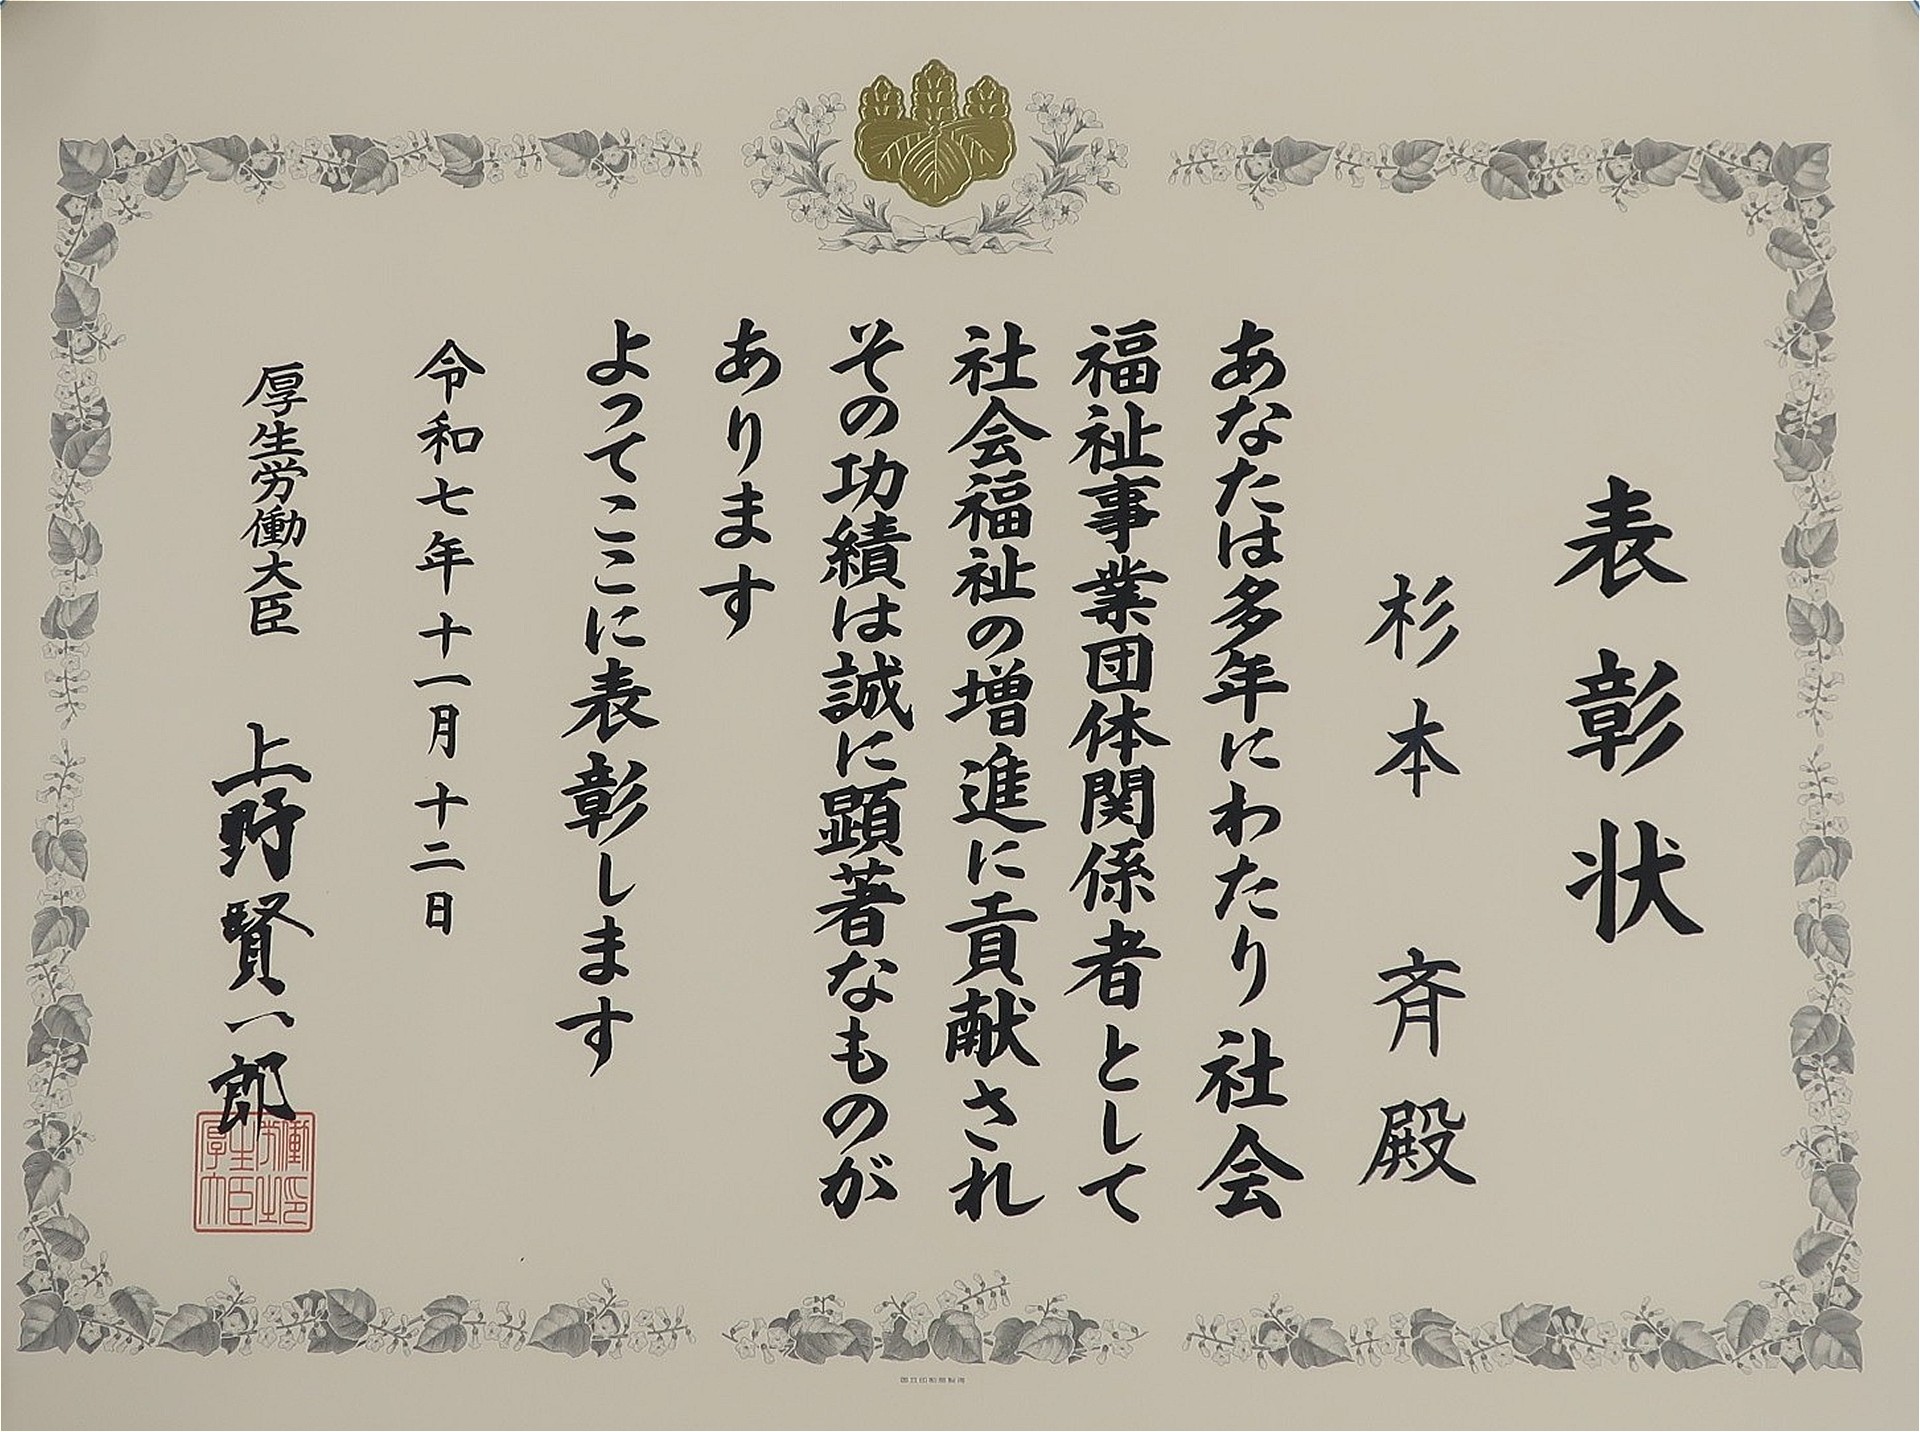 表彰状
杉本 斉殿
あなたは多年にわたり社会
福祉事業団体関係者として
社会福祉の増進に貢献され
その功績は誠に顕著なものが
あります
よってここに表彰します
令和七年十一月十二日
厚生労働大臣 上野賢一郎